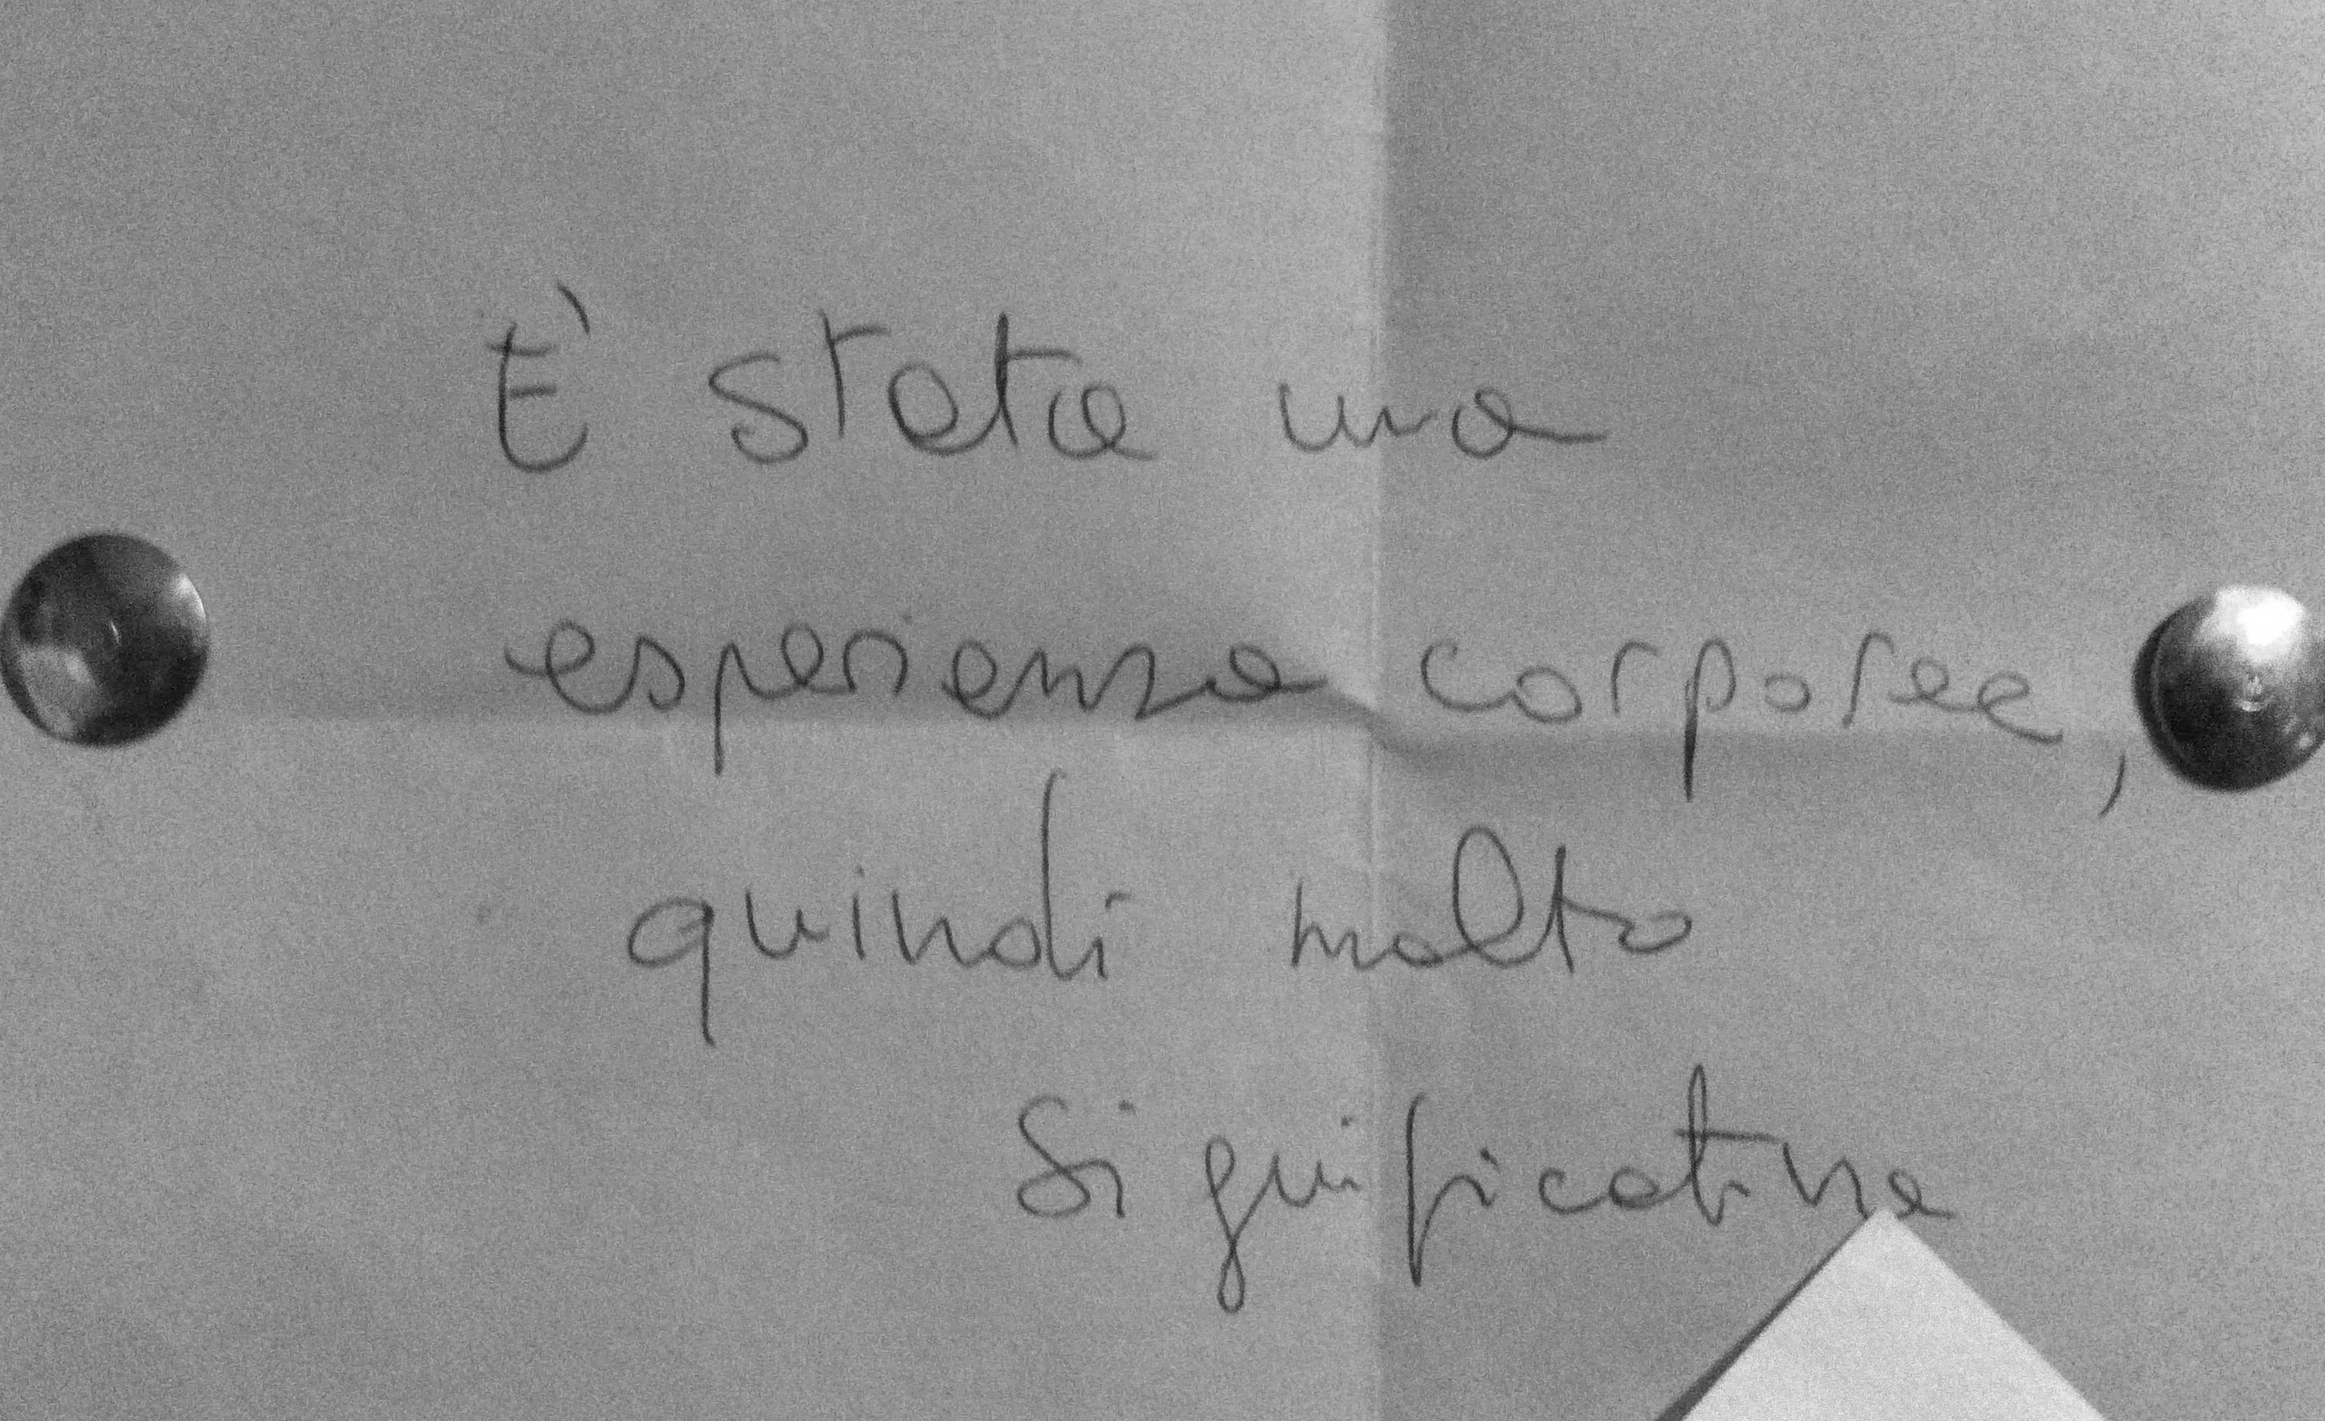 E' stata una
esperienza corporea,
quindi molto
significativa